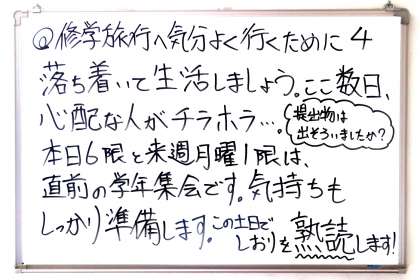 @修学旅行へ気分よく行くために4
落ち着いて生活しましょう。ここ数日、
心配な人がチラホラ…。
提出物は
出そろいましたか?
本日6限と来週月曜1限は、
直前の学年集会です。気持ちも
しっかり準備します。この土日で
しおりを熟読します!